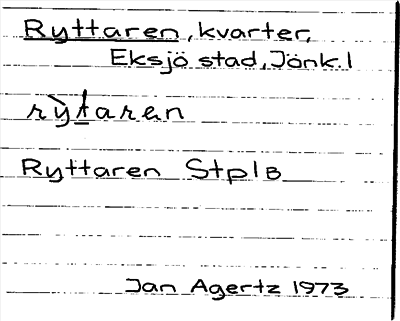 Ryttaren, kvarter,
Eksjö stad, Jönk. l
rỳtaren
Ryttaren StplB
Jan Agertz 1973